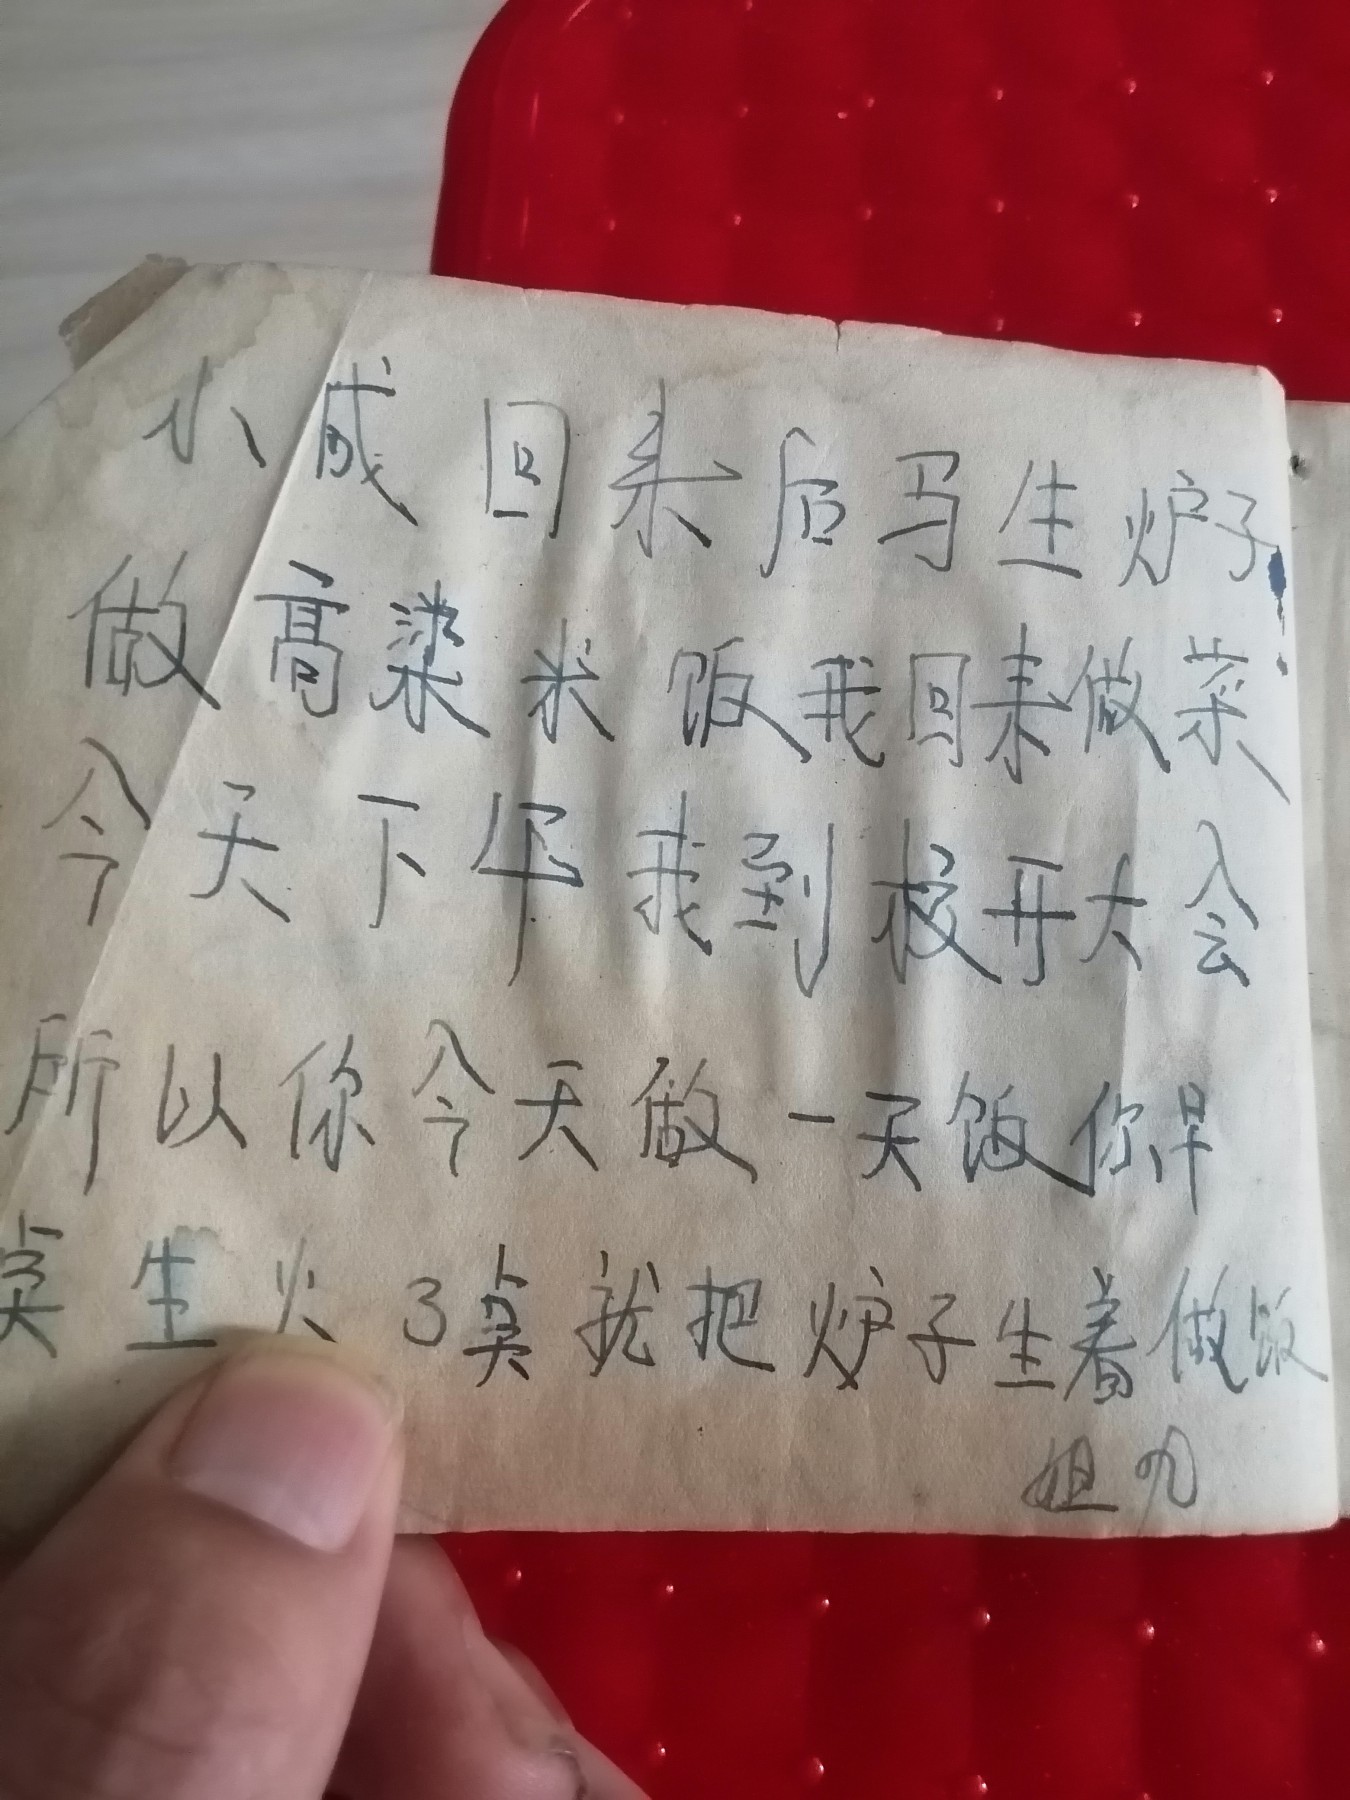 小成回来后马生炉子
做高粱米饭我回来做菜
今天下午我到校开大会
所以你今天做一天饭你早
点生火3点就把炉子生着做饭
姐